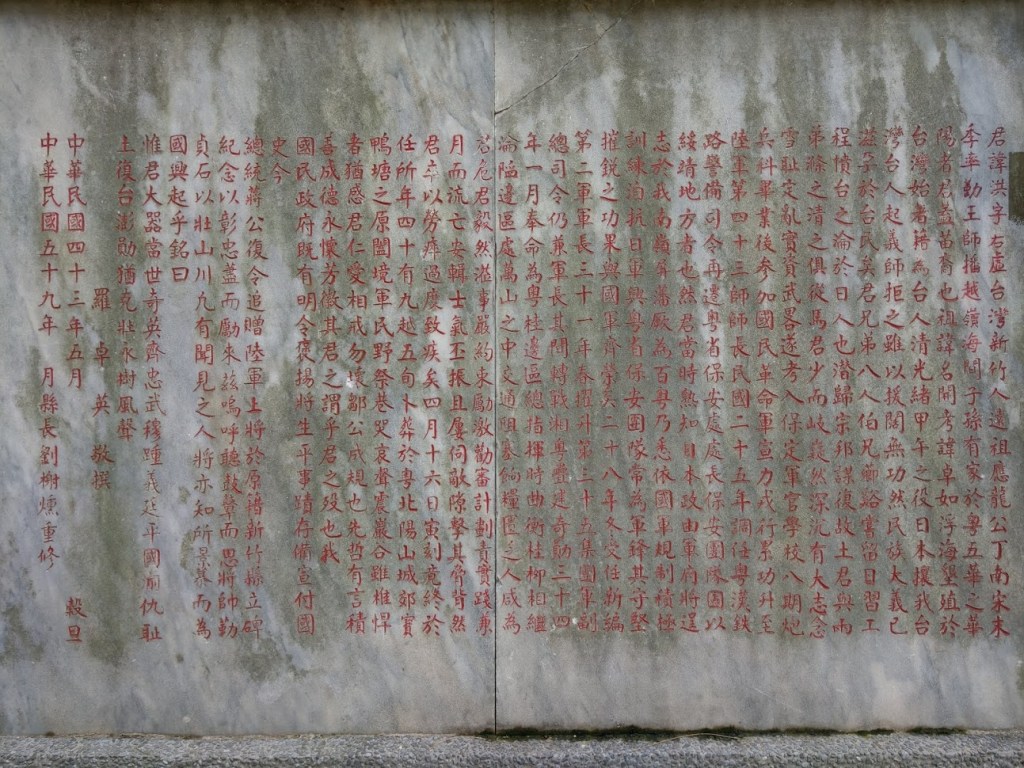 君諱洪字若虛台灣新竹人遠祖應龍公丁南宋末
季率勤王師播越嶺海間子孫有家於粵五華之華
陽者君蓋苗裔也祖諱名開考諱卓如浮海墾殖於
台灣始著籍為台人清光緒甲午之役日本攘我台
灣台人起義師拒之雖以援闕無功然民族大義已
滋孕於台民矣君兄弟八人伯兄卿谿嘗留日習工
程憤台之淪於日人也潛歸宗邦謀復故土君與兩
弟滌之清之俱從焉君少而岐嶷然深沉有大志念
雪恥定亂實資武畧遂考入保定軍官學校八期炮
兵科畢業後參加國民革命軍宣力戎行累功升至
陸軍第四十三師師長民國二十五年調任粵漢鉄
路警備司令再遷粵省保安處處長保安團隊固以
綏靖地方者也然君當時熟知日本政由軍府將逞
志於我南嶺屏藩厥為百粵乃悉依國軍規制積極
訓練洎抗日軍興粵省保安團隊常為軍鋒其守堅
摧銳之功果與國軍齊擧矣二十八年冬受任新編
第二軍軍長三十一年春擢升第三十五集團軍副
總司令仍兼軍長其間轉戰湘粵疊建奇勳三十四
年一月奉命為粵桂邊區總指揮時曲衡桂柳相繼
淪陷邊區處萬山之中交通阻塞餉糧匱乏人咸為
若危君毅然涖事嚴約束勵激勸審計劃責實踐兼
月而流亡安輯士氣丕振且屢伺敵隙擊其脅背然
君卒以勞瘁過度致疾矣四月十六日寅刻竟終於
任所年四十有九越五旬卜葬於粵北陽山城郊賓
鴨塘之原闔境軍民野祭巷哭哀聲震巖谷雖椎悍
者猶感君仁愛相戒勿壞鄒公成規也先哲有言積
善成德永懷芳徽其君之謂乎君之歿也我
國民政府既有明令褒揚將生平事蹟存備宣付國
史今
總統蔣公復令追贈陸軍上將於原籍新竹縣立碑
紀念以彰忠藎而勵來茲嗚呼聽鼓鼙而思將帥勒
貞石以壯山川凡有聞見之人將亦知所景慕而為
國興起乎銘曰
惟君大器當世奇英齊忠武穆踵義延平國湔仇恥
土復台澎勛猶克壯永樹風聲
羅卓英敬撰
中華民國四十三年五月 穀旦
中華民國五十九年 月縣長劉榭燻重修